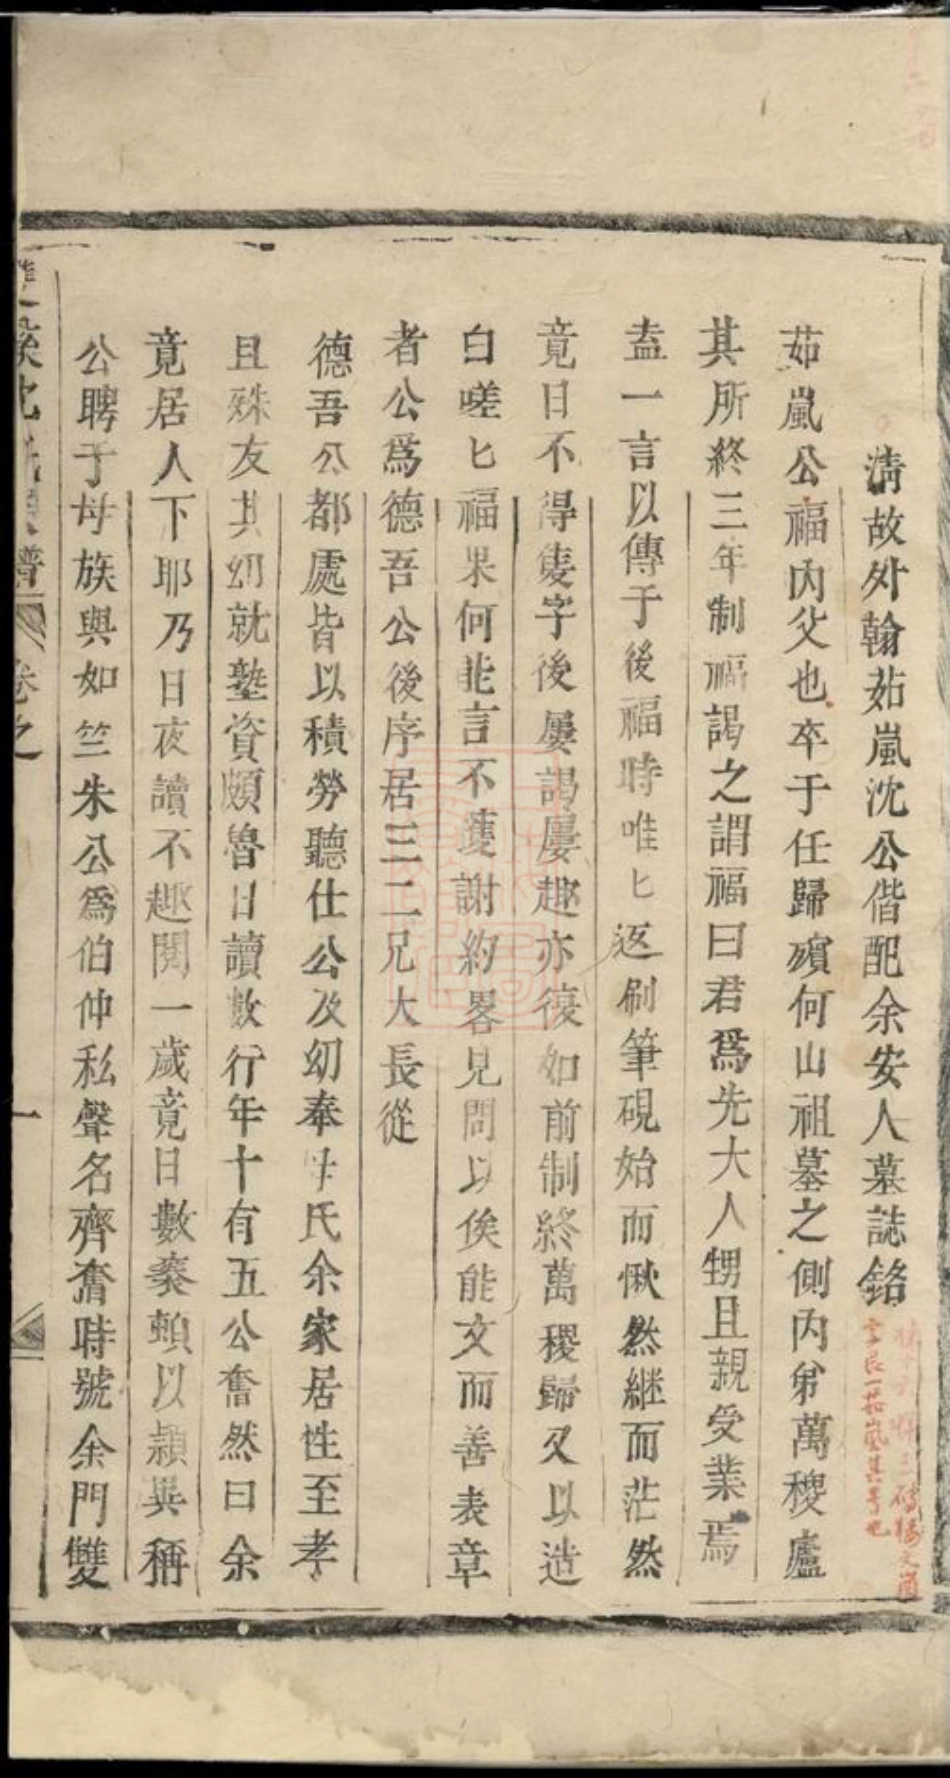 清故外翰茹嵐沈公偕配余安人墓誌銘
茹嵐公福内父也卒于任歸殯何山祖墓之側内弟萬稷廬
其所終三年制福謁之謂福曰君為先大人甥且親受業焉
盍一言以傳于後福時唯匕返刷筆硯始而愀然継而茫然
竟日不得隻字後屢謁屢趣亦復如前制終萬稷歸又以造
白嗟匕福果何能言不獲謝約畧見問以俟能文而善表章
者公為德吾公後序居三二兄大長從
德吾公都處皆以積勞聽仕公及幼奉母氏余家居性至孝
且殊友其幼就塾資頗魯日讀數行年十有五公奮然曰余
竟居人下耶乃日夜讀不趣閱一歲竟日數藝頼以頴異稱
公聘于母族與如竺朱公為伯仲私聲名齊奮時號余門雙
沈氏 譜 卷之 一